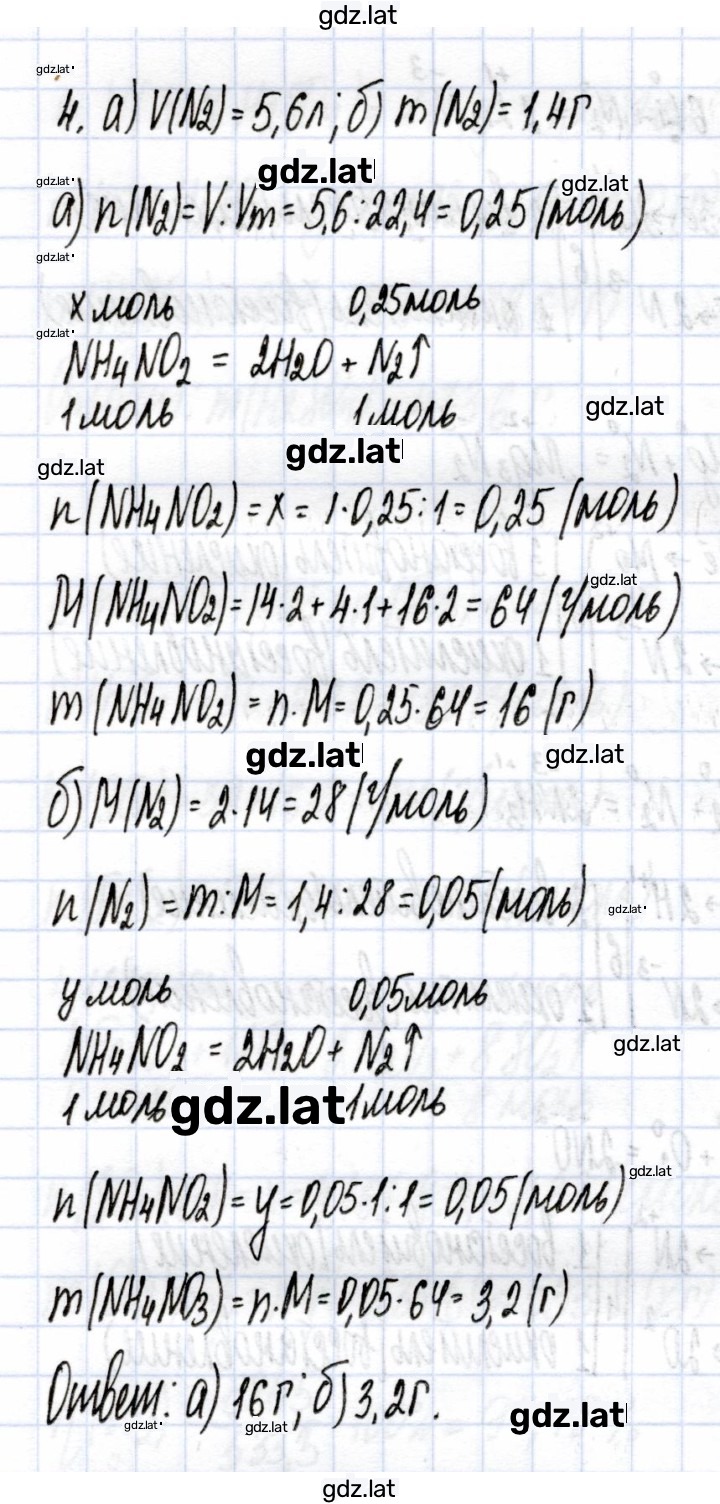 gdz.lat
gdz.lat
4. а) V(N2) = 5,6л; б) m(N2) = 1,4г
gdz.lat
gdz.lat gdz.lat
а) n(N2) = V:Vm = 5,6:22,4 = 0,25 (моль)
gdz.lat
х моль 0,25моль
gdz.lat
NH4NO2 = 2H2O + N2↑
1 моль 1 моль gdz.lat
gdz.lat gdz.lat
n(NH4NO2) = x = 1·0,25:1 = 0,25 (моль)
gdz.lat
M(NH4NO2) = 14·2+4·1+16·2 = 64 (г/моль)
m(NH4NO2) = n·M = 0,25·64 = 16 (г)
gdz.lat gdz.lat
б) M(N2) = 2·14 = 28 (г/моль)
n(N2) = m:M = 1,4:28 = 0,05(моль) gdz.lat
у моль 0,05моль
NH4NO2 = 2H2O + N2↑ gdz.lat
1 моль gdz.lat 1 моль
gdz.lat
n(NH4NO2) = y = 0,05·1:1 = 0,05 (моль)
m(NH4NO3) = n·M = 0,05·64 = 3,2 (г)
Ответ: а) 16г; б) 3,2г.
gdz.lat gdz.lat gdz.lat
gdz.lat